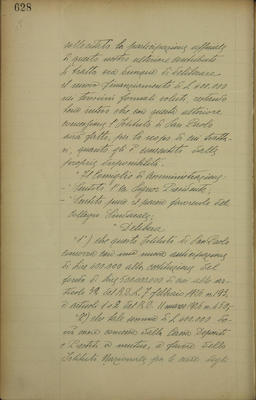 628
sollecitato la partecipazione
di questo nostro ulteriore contributo
si tratta ora dunque di deliberare
il nuovo finanziamento di L. 600.000
nei termini formali voluti, restando
inteso che con questa ulteriore
concessione l'Istituto di San Paolo
avrà fatto, per lo scopo di cui tratta-
si, quanto gli è consentito dalle
proprie disponibilità.
"Il Consiglio di Amministrazione:
- Sentito il Signor Presidente;
- Sentito pure il parere favorevole del
Collegio Sindacale;
"Delibera
"1°) che questo Istituto di San Paolo
concorra con una nuova
di lire 600.000 alla costituzione del
fondo di lire di cui allo ar-
ticolo 32 del R.D.L. 7 febbraio 1926 n. 193,
e articoli 1 e 2 del R.D. 11 marzo 1926 n.
"2°) che tale somma di L. 600.000
concessa dalla Cassa Depositi
e Prestiti a mutuo, a favore dello
Istituto Nazionale per le case degli